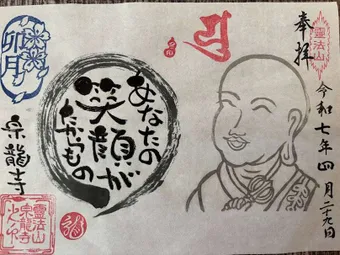 奉拝
霊法山
令和七年四月二十九日
あなたの
笑顔が
たからもの
卯月
宗龍寺
霊法山
宗龍寺